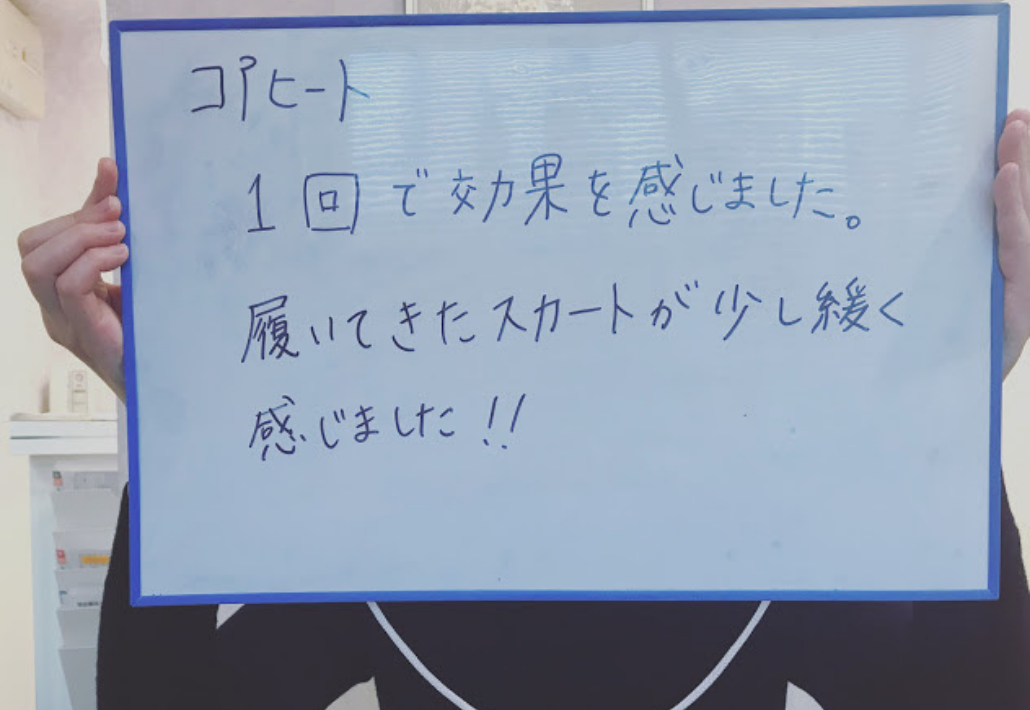 コアヒート
1回で効果を感じました。
履いてきたスカートが少し緩く
感じました!!